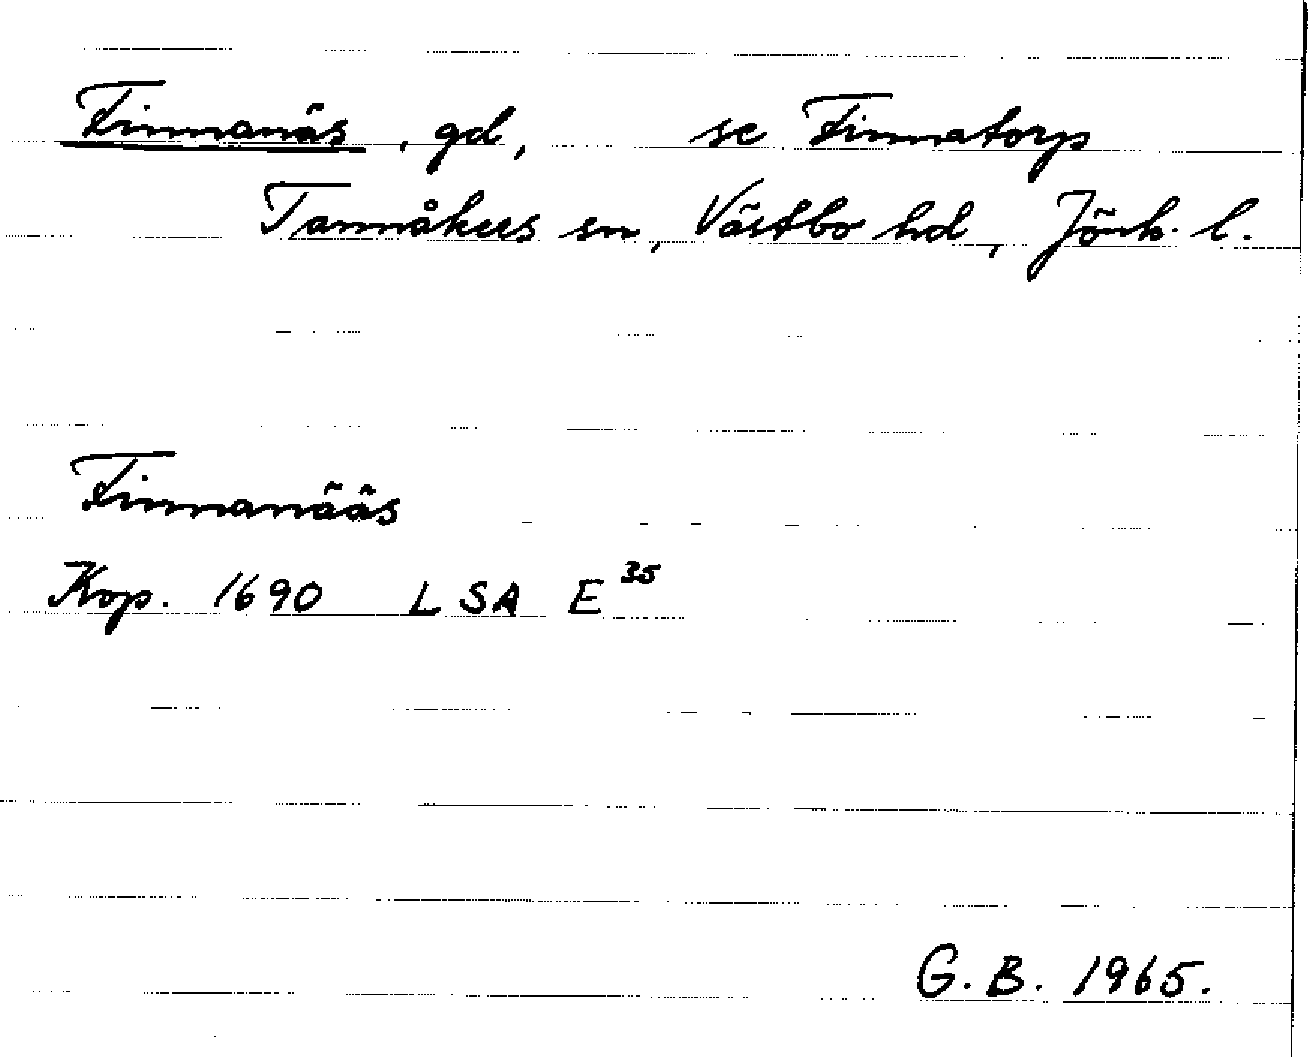 Finnanäs, gd, se Finnatorp
Tannåkers sn, Västbo hd, Jönk. l.
Finnanääs
Kop. 1690 LSA E 35
G. B. 1965.